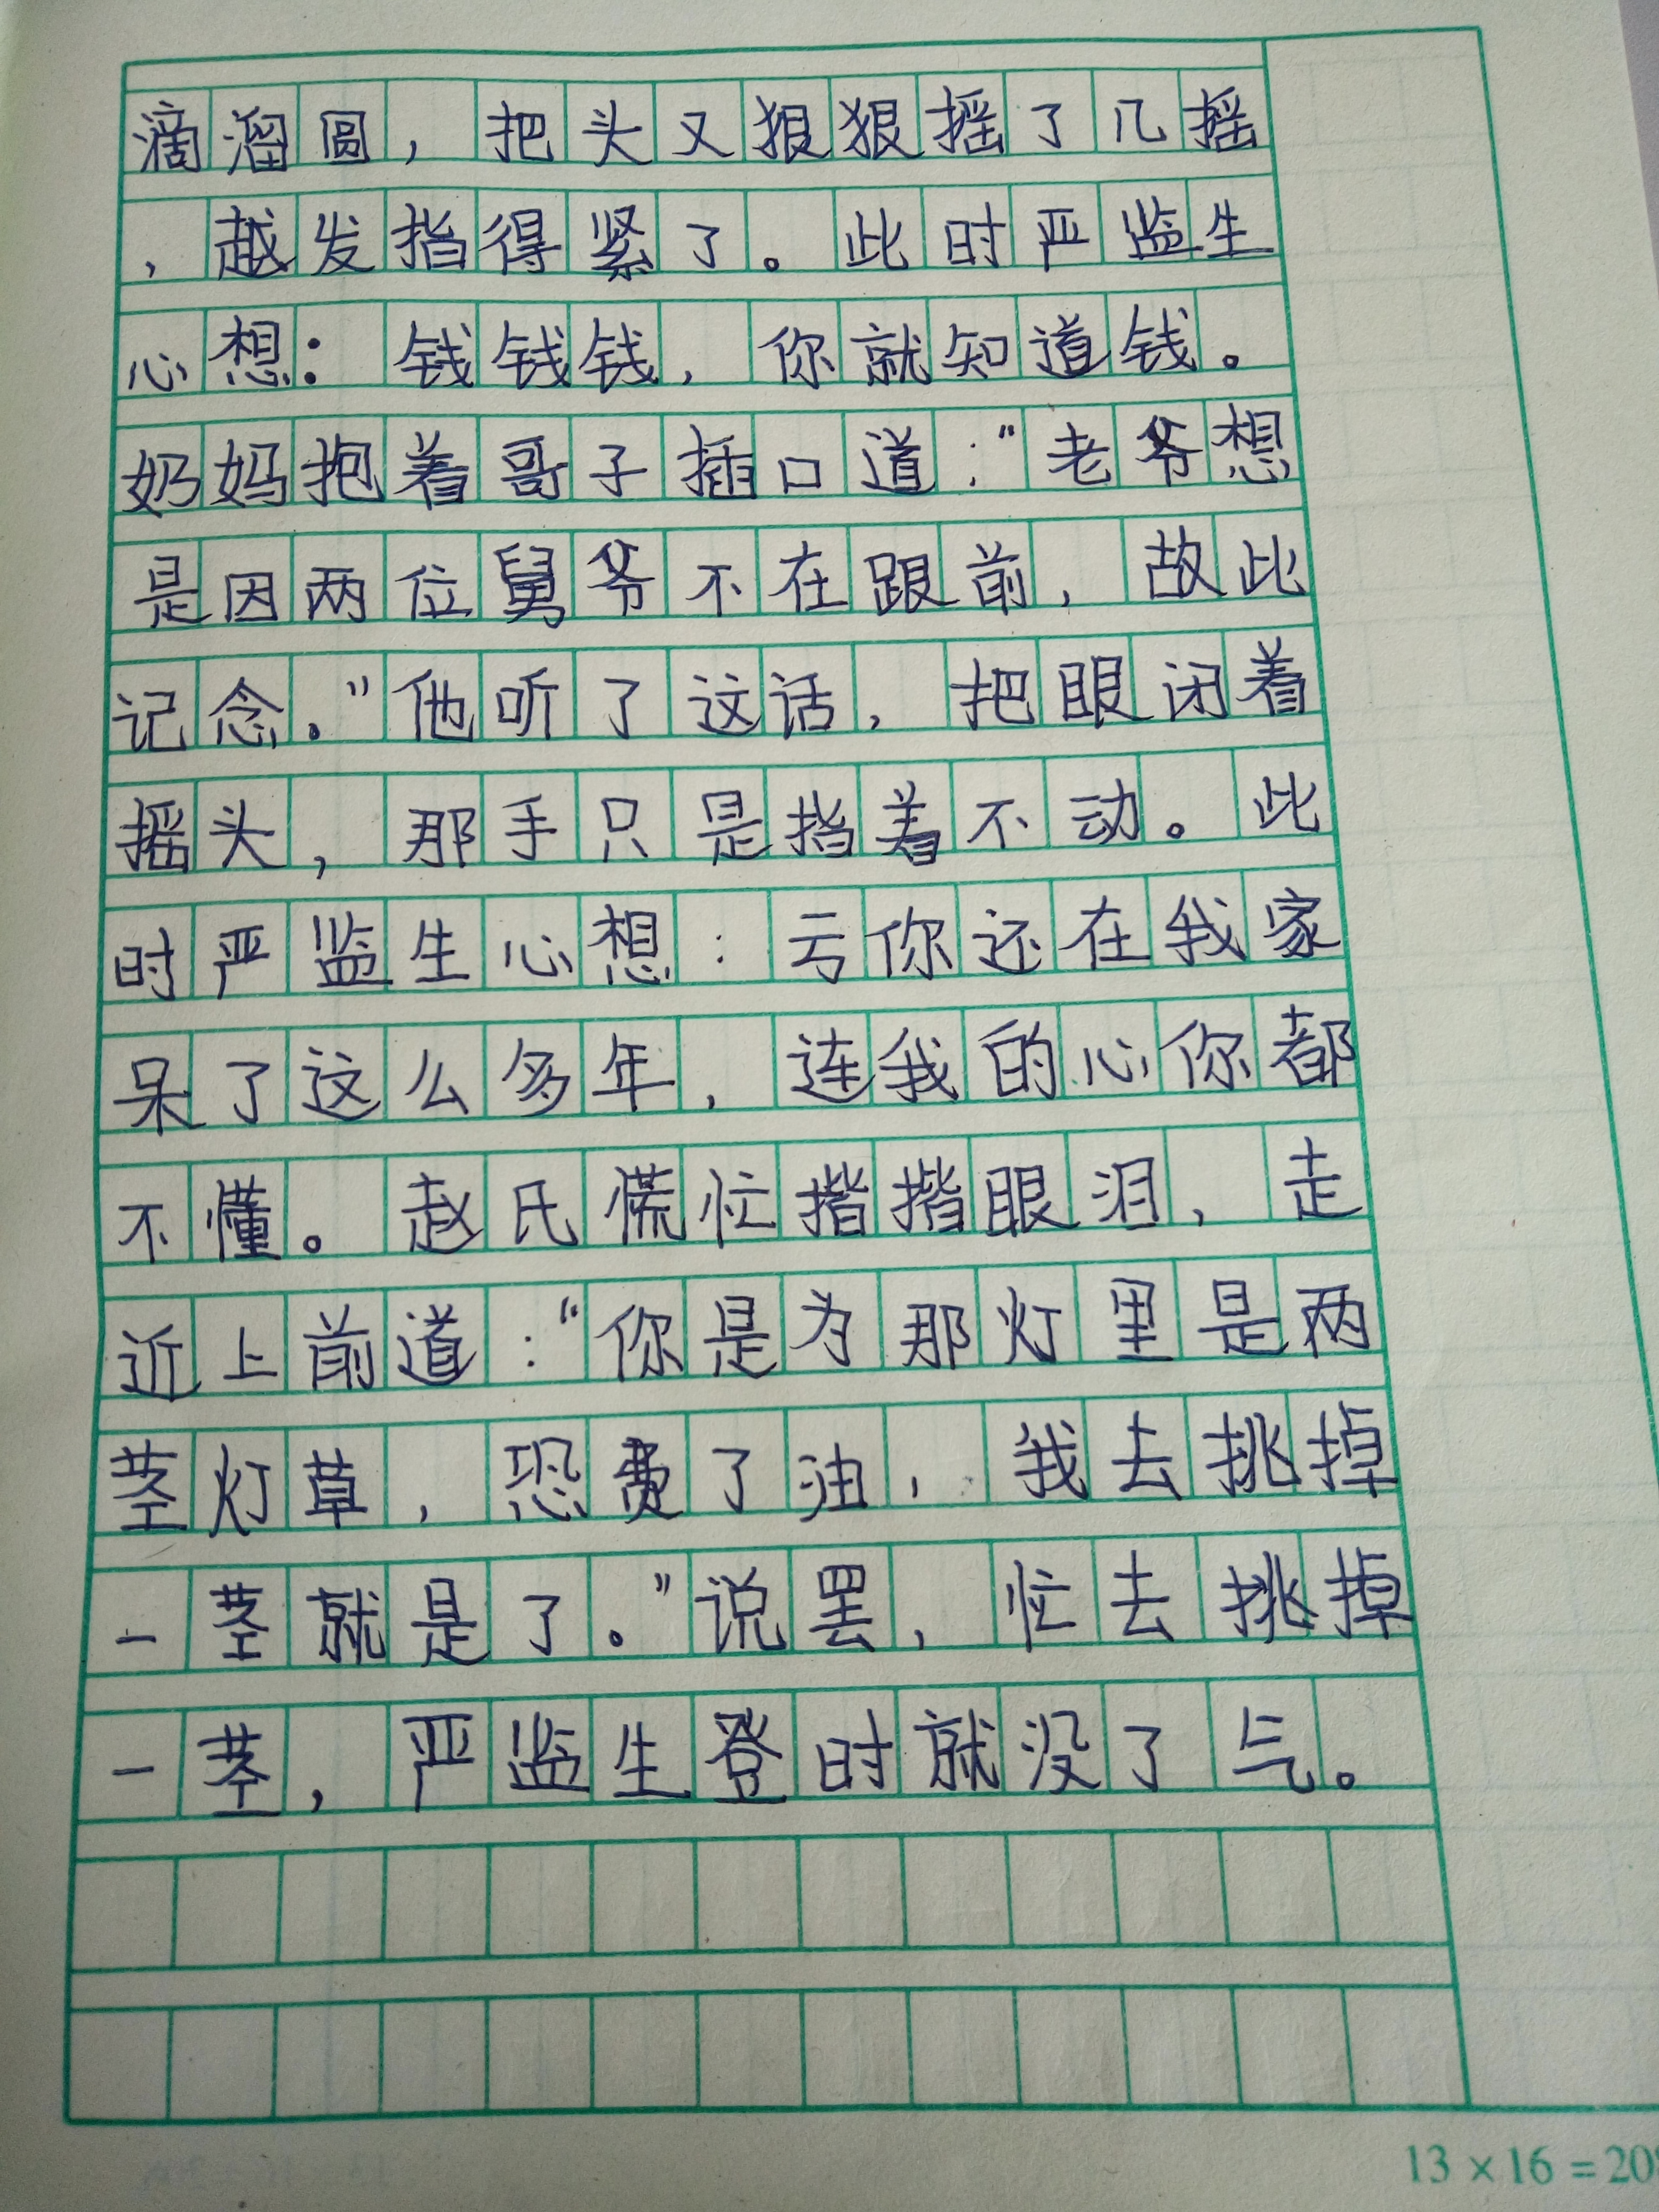 滴溜圆，把头又狠狠摇了几摇
，越发指得紧了。此时严监生
心想：钱钱钱，你就知道钱。
奶妈抱着哥子插口道：“老爷想
是因两位舅爷不在跟前，故此
记念。”他听了这话，把眼闭着
摇头，那手只是指着不动。此
时严监生心想：亏你还在我家
呆了这么多年，连我的心你都
不懂。赵氏慌忙揩揩眼泪，走
近上前道：“你是为那灯里是两
茎灯草，恐费了油，我去挑掉
一茎就是了。”说罢，忙去挑掉
一茎，严监生登时就没了气。
13×16=208